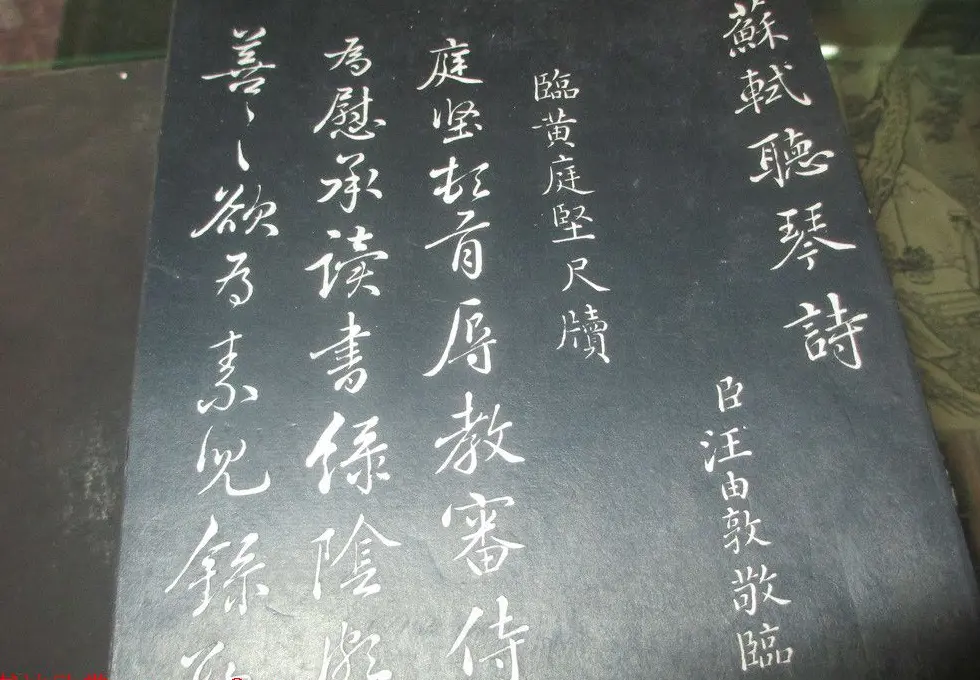 蘇軾聽琴詩
臣汪由敦敬臨
臨黄庭堅尺牘
庭坚頓首辱教審侍
為慰承读書綠陰
善〻〻欲為素兒錄